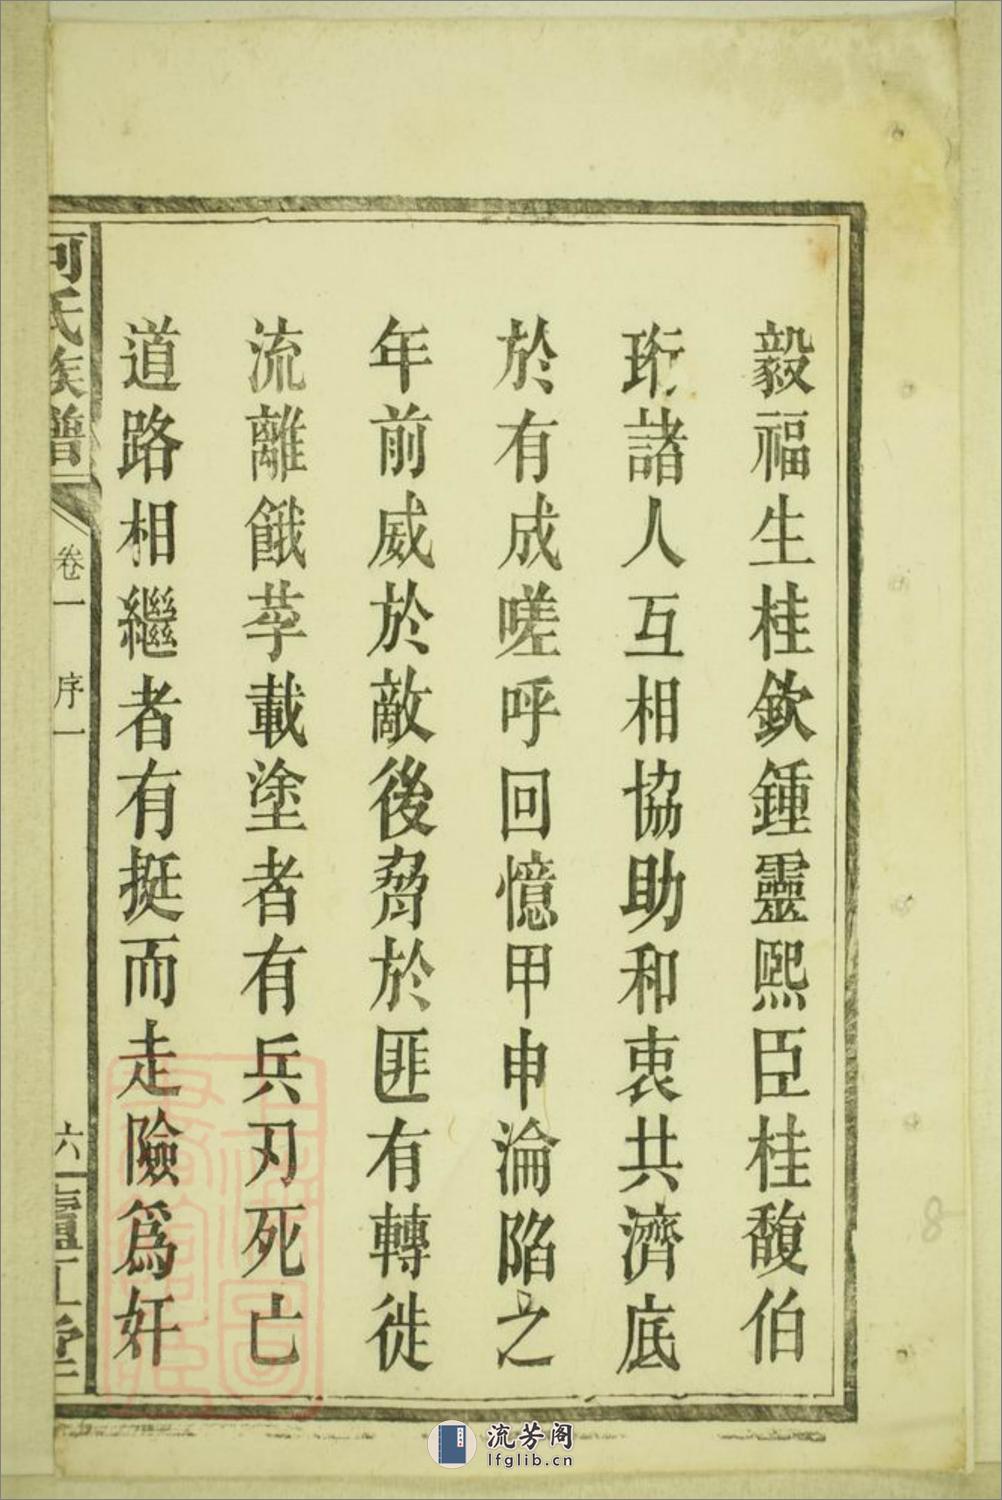 毅福生桂欽鍾靈熙臣桂馥伯
珩諸人互相協助和衷共濟底
於有成嗟呼回憶甲申淪陷之
年前威於敵後脅於匪有轉徙
流離餓莩載塗者有兵刃死亡
道路相繼者有挺而走險爲奸
何氏族譜
卷一 序一
六
廬江堂
流芳阁
lfglib.cn
8